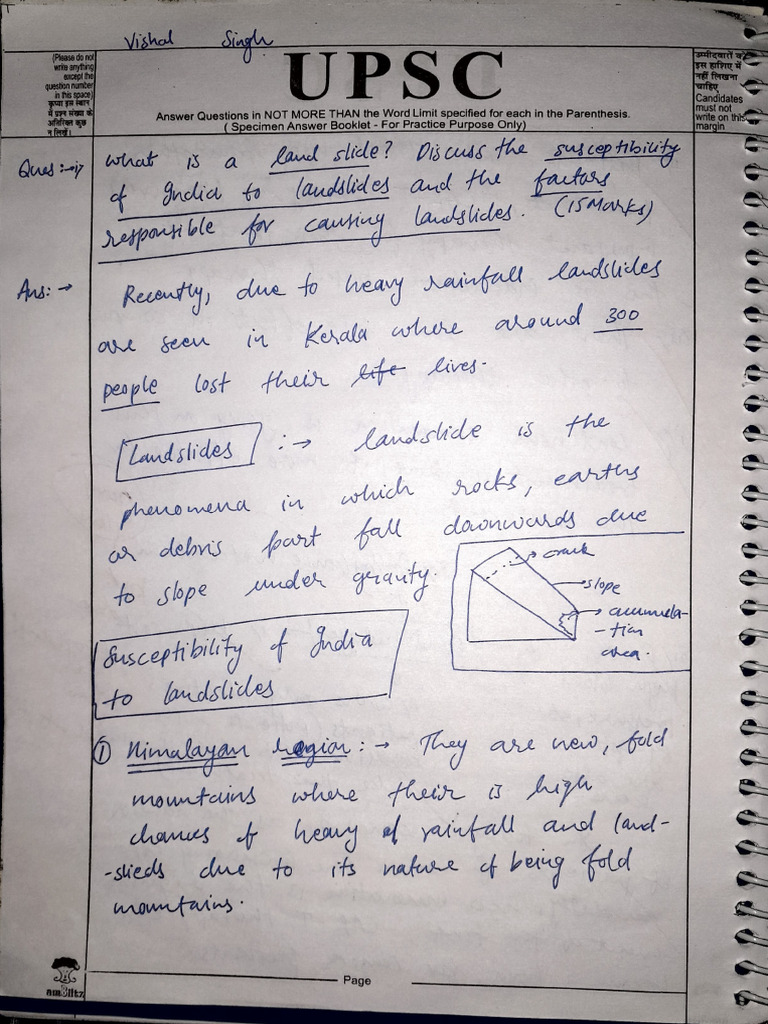 Vishal Singh
(Please do not
write anything
except the
question number
in this space)
कृपया इस स्थान
में प्रश्न संख्या के
अतिरिक्त कुछ
न लिखें।
UPSC
Answer Questions in NOT MORE THAN the Word Limit specified for each in the Parenthesis.
( Specimen Answer Booklet - For Practice Purpose Only)
उम्मीदवारों को
इस हाशिए में
नहीं लिखना
चाहिए
Candidates
must not
write on this
margin
Ques :→ what is a land slide? Discuss the susceptibility
of India to landslides and the factors
responsible for causing landslides. (15 Marks)
Ans: → Recently, due to heavy rainfall landslides
are seen in Kerala where around 300
people lost their life lives.
Landslides :→ landslide is the
phenomena in which rocks, earths
or debris part fall downwards due
to slope under gravity.
crack
slope
accumula-
-tion
area.
Susceptibility of India
to landslides
① Himalayan region :→ They are new, fold
mountains where their is high
chances of heavy of rainfall and land-
-slieds due to its nature of being fold
mountains.
Page